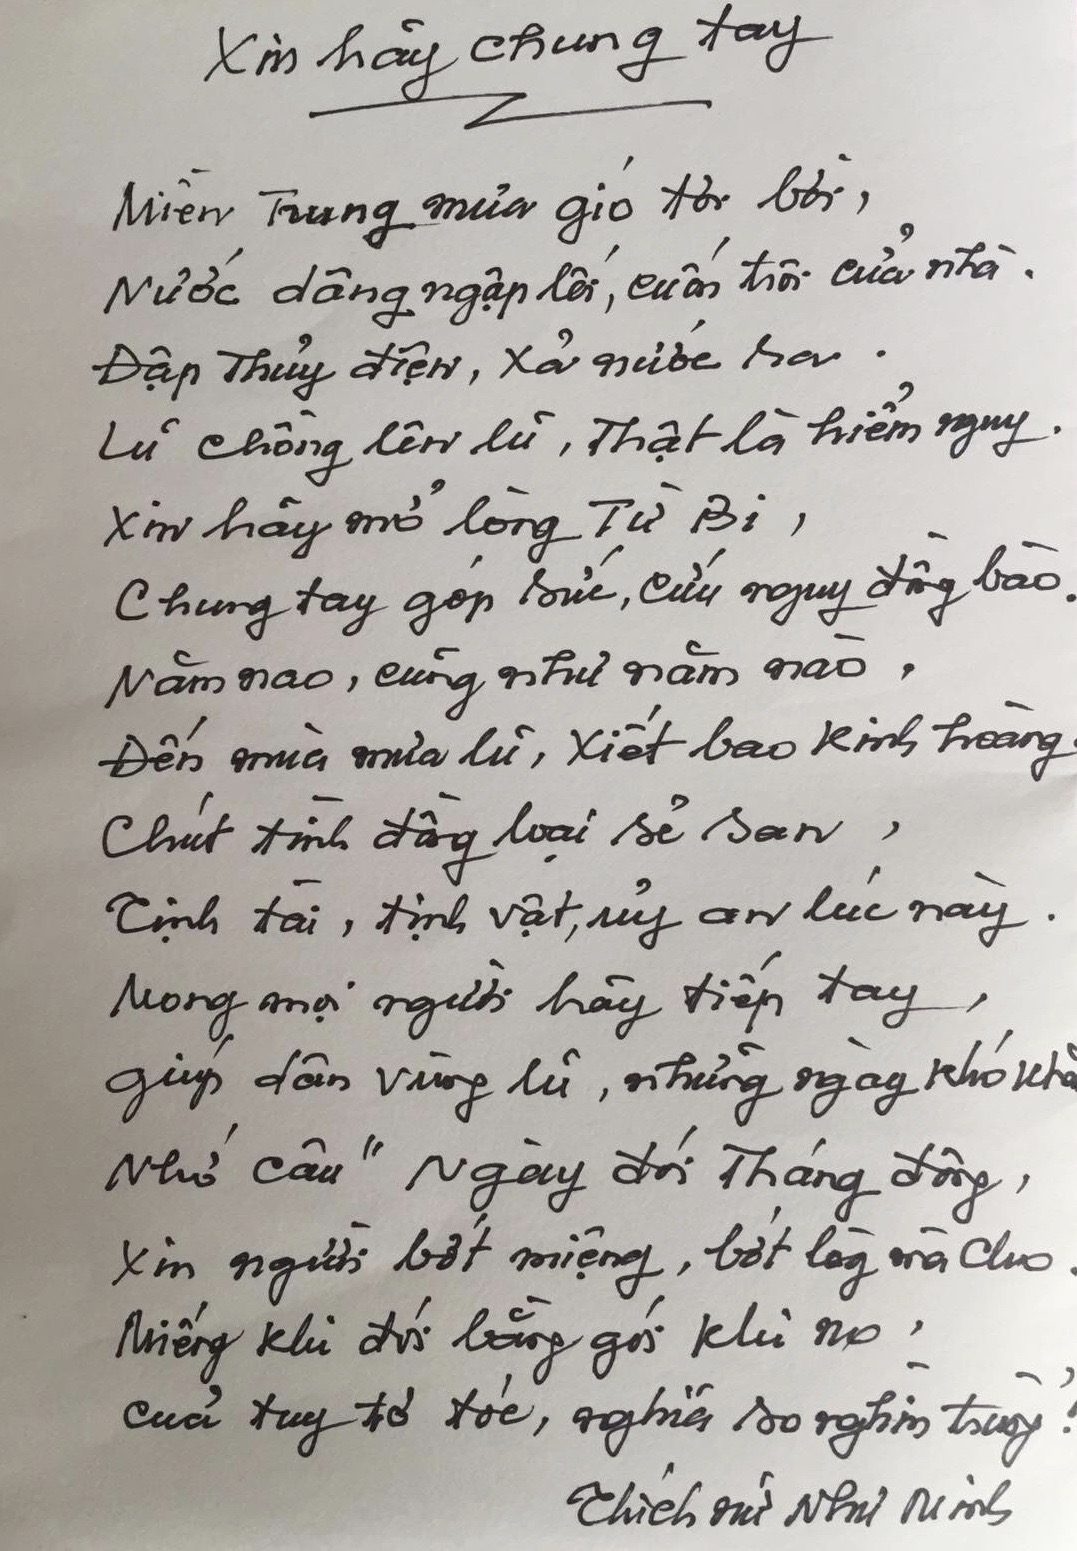 Xin hãy chung tay
Miền Trung mưa gió tơi bời,
Nước dâng ngập lối, cuốn trôi cửa nhà.
Đập Thủy điện, xả nước ra.
Lũ chồng lên lũ, thật là hiểm nguy.
Xin hãy mở lòng Từ Bi,
Chung tay góp sức, cứu nguy đồng bào.
Năm nao, cũng như năm nào,
Đến mùa mưa lũ, xiết bao kinh hoàng.
Chút tình đồng loại sẻ san,
Tịnh tài, tịnh vật, ủy an lúc này.
Mong mọi người hãy tiếp tay,
giúp dân vùng lũ, những ngày khó khă
Nhớ câu " Ngày đói Tháng đông,
Xin người bớt miệng, bớt lòng mà cho.
Miếng khi đói bằng gói khi no,
của tuy tơ tóc, nghĩa so nghìn trùng!
Thích nữ Như Minh